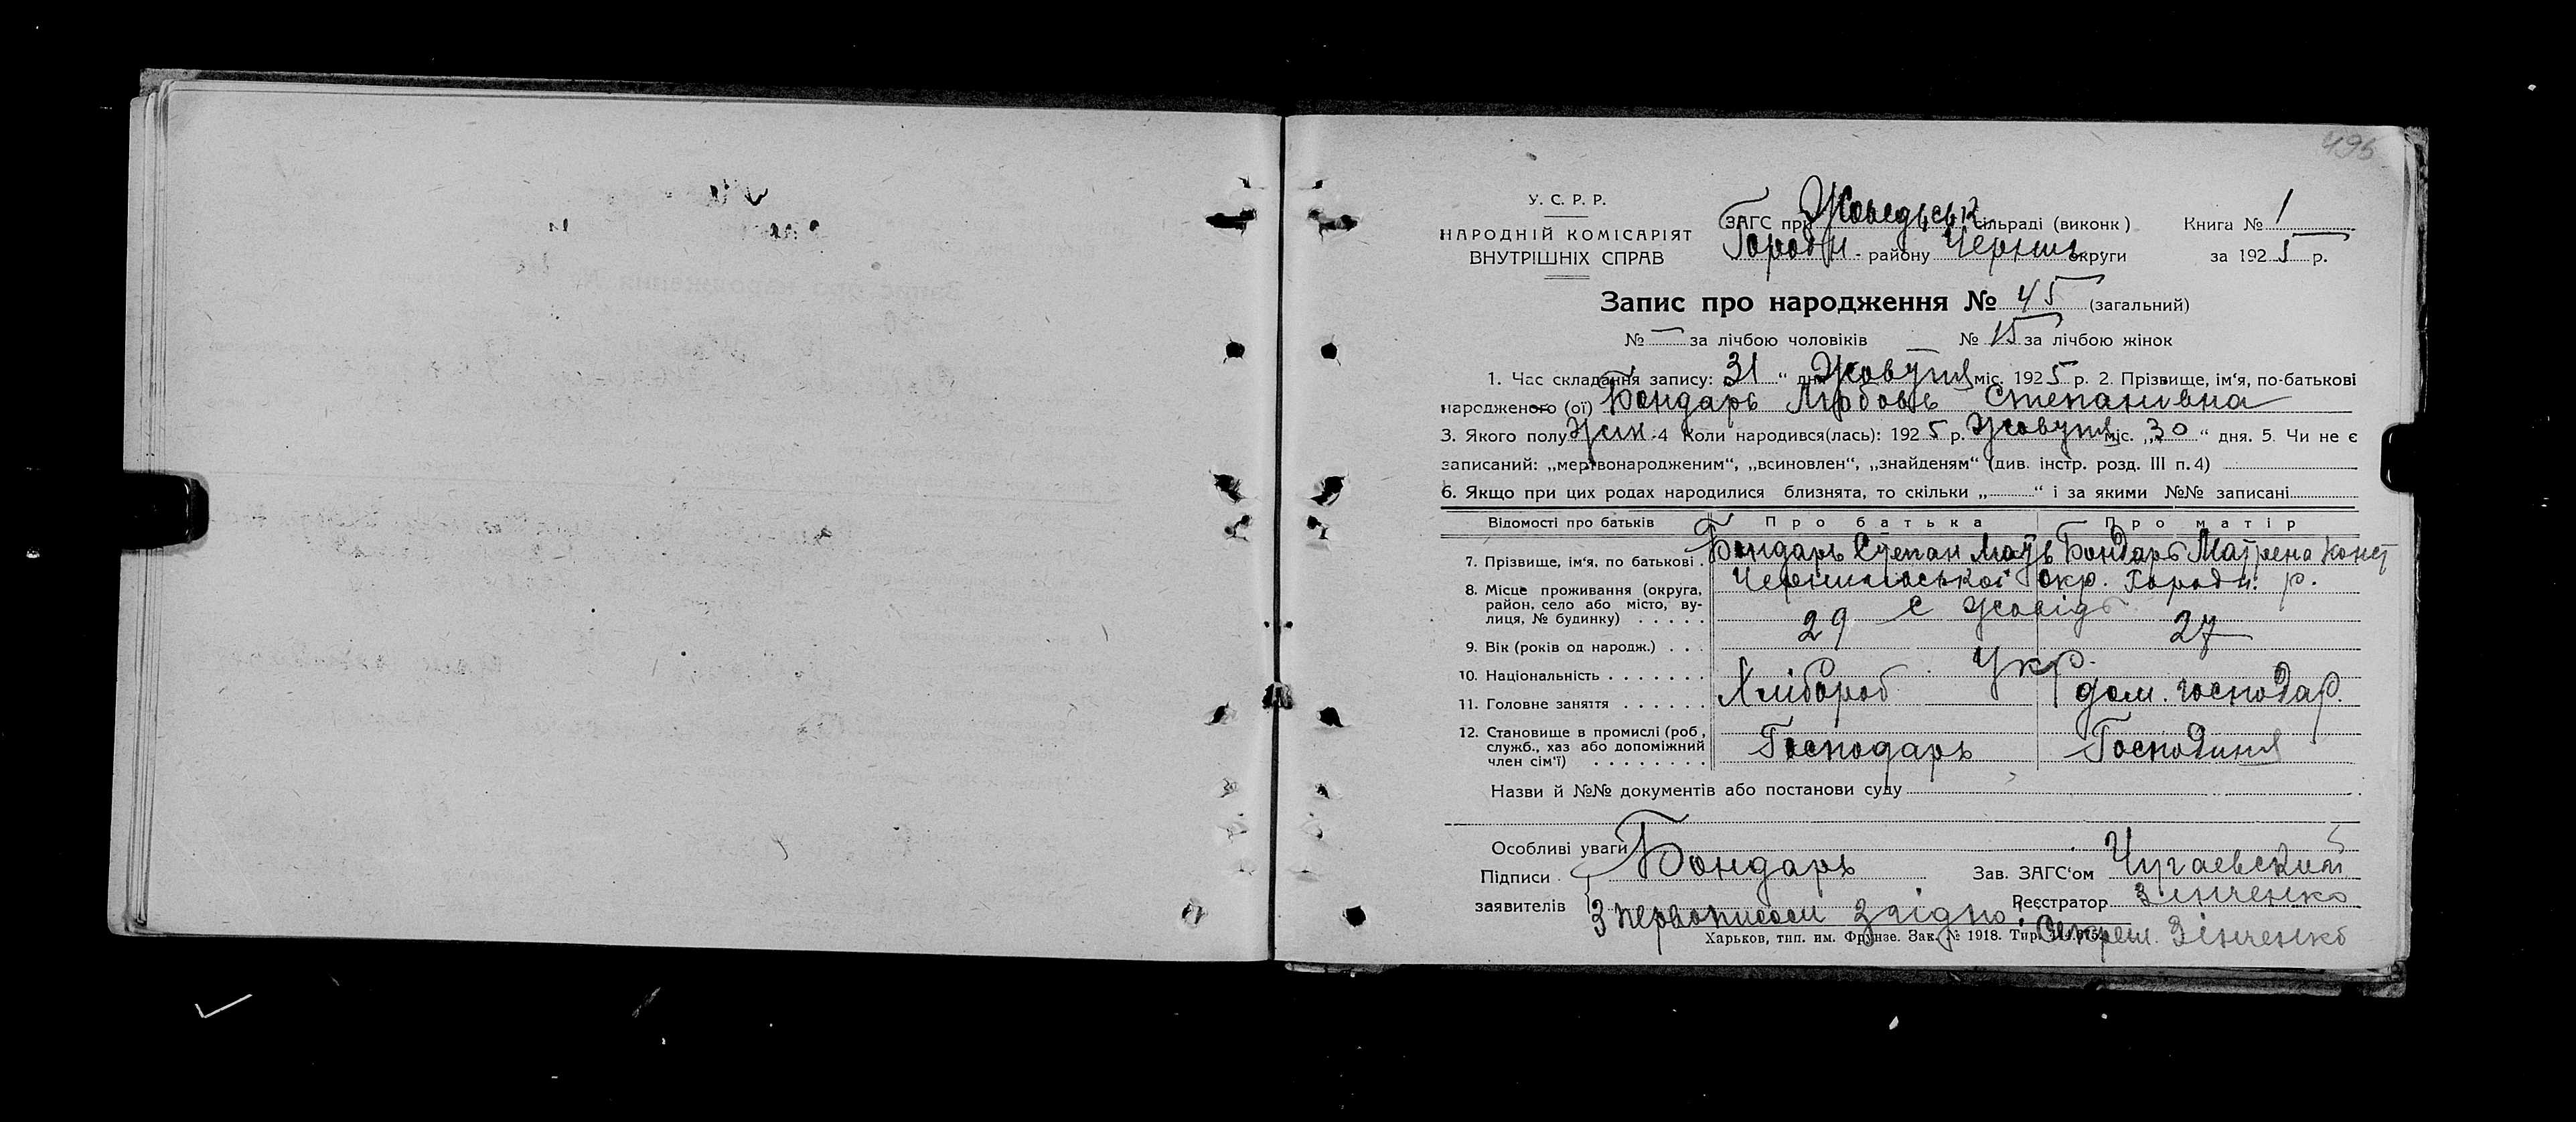 495
У. С. Р. Р.
НАРОДНІЙ КОМІСАРІЯТ
ВНУТРІШНІХ СПРАВ
ЗАГС при Жоведьськ. сільраді (виконк)
Городн. району Черниг. округи
Книга № 1
за 1925 р.
Запис про народження № 45 (загальний)
№ — за лічбою чоловіків № 15 за лічбою жінок
1. Час складання запису: „31“ дня Жовтня міс. 1925 р. 2. Прізвище, ім‘я, по-батькові
народженого (ої) Бондарь Любовь Степановна
3. Якого полу Жін. 4 Коли народився(лась): 1925 р. Жовтня міс. „30“ дня. 5. Чи не є
записаний: „мертвонародженим“, „всиновлен“, „знайденям“ (див. інстр. розд. III п. 4)
6. Якщо при цих родах народилися близнята, то скільки „ “ і за якими №№ записані
Відомості про батьків Про батька Про матір
7. Прізвище, ім‘я, по батькові . Бондарь Степан Матв Бондарь Матрена Конст
8. Місце проживання (округа, район, село або місто, вулиця, № будинку) . . . . . Чернигівської окр. Городн. р.
с Жовідь
9. Вік (років од народж.) . . . 29 27
10. Національність . . . . . . . Укр.
11. Головне заняття . . . . . . Хлібороб дом. господар.
12. Становище в промислі (роб, служб., хаз або допоміжний член сім‘ї) . . . . . . . . Господарь Господиня
Назви й №№ документів або постанови суду
Особливі уваги
Підписи заявителів Бондарь
Зав. ЗАГС‘ом Чугаевский
Реєстратор Зінченко
З первописом згідно: Секрет. Зінченко
Харьков, тип. им. Фрунзе. Зак. № 1918. Тир.